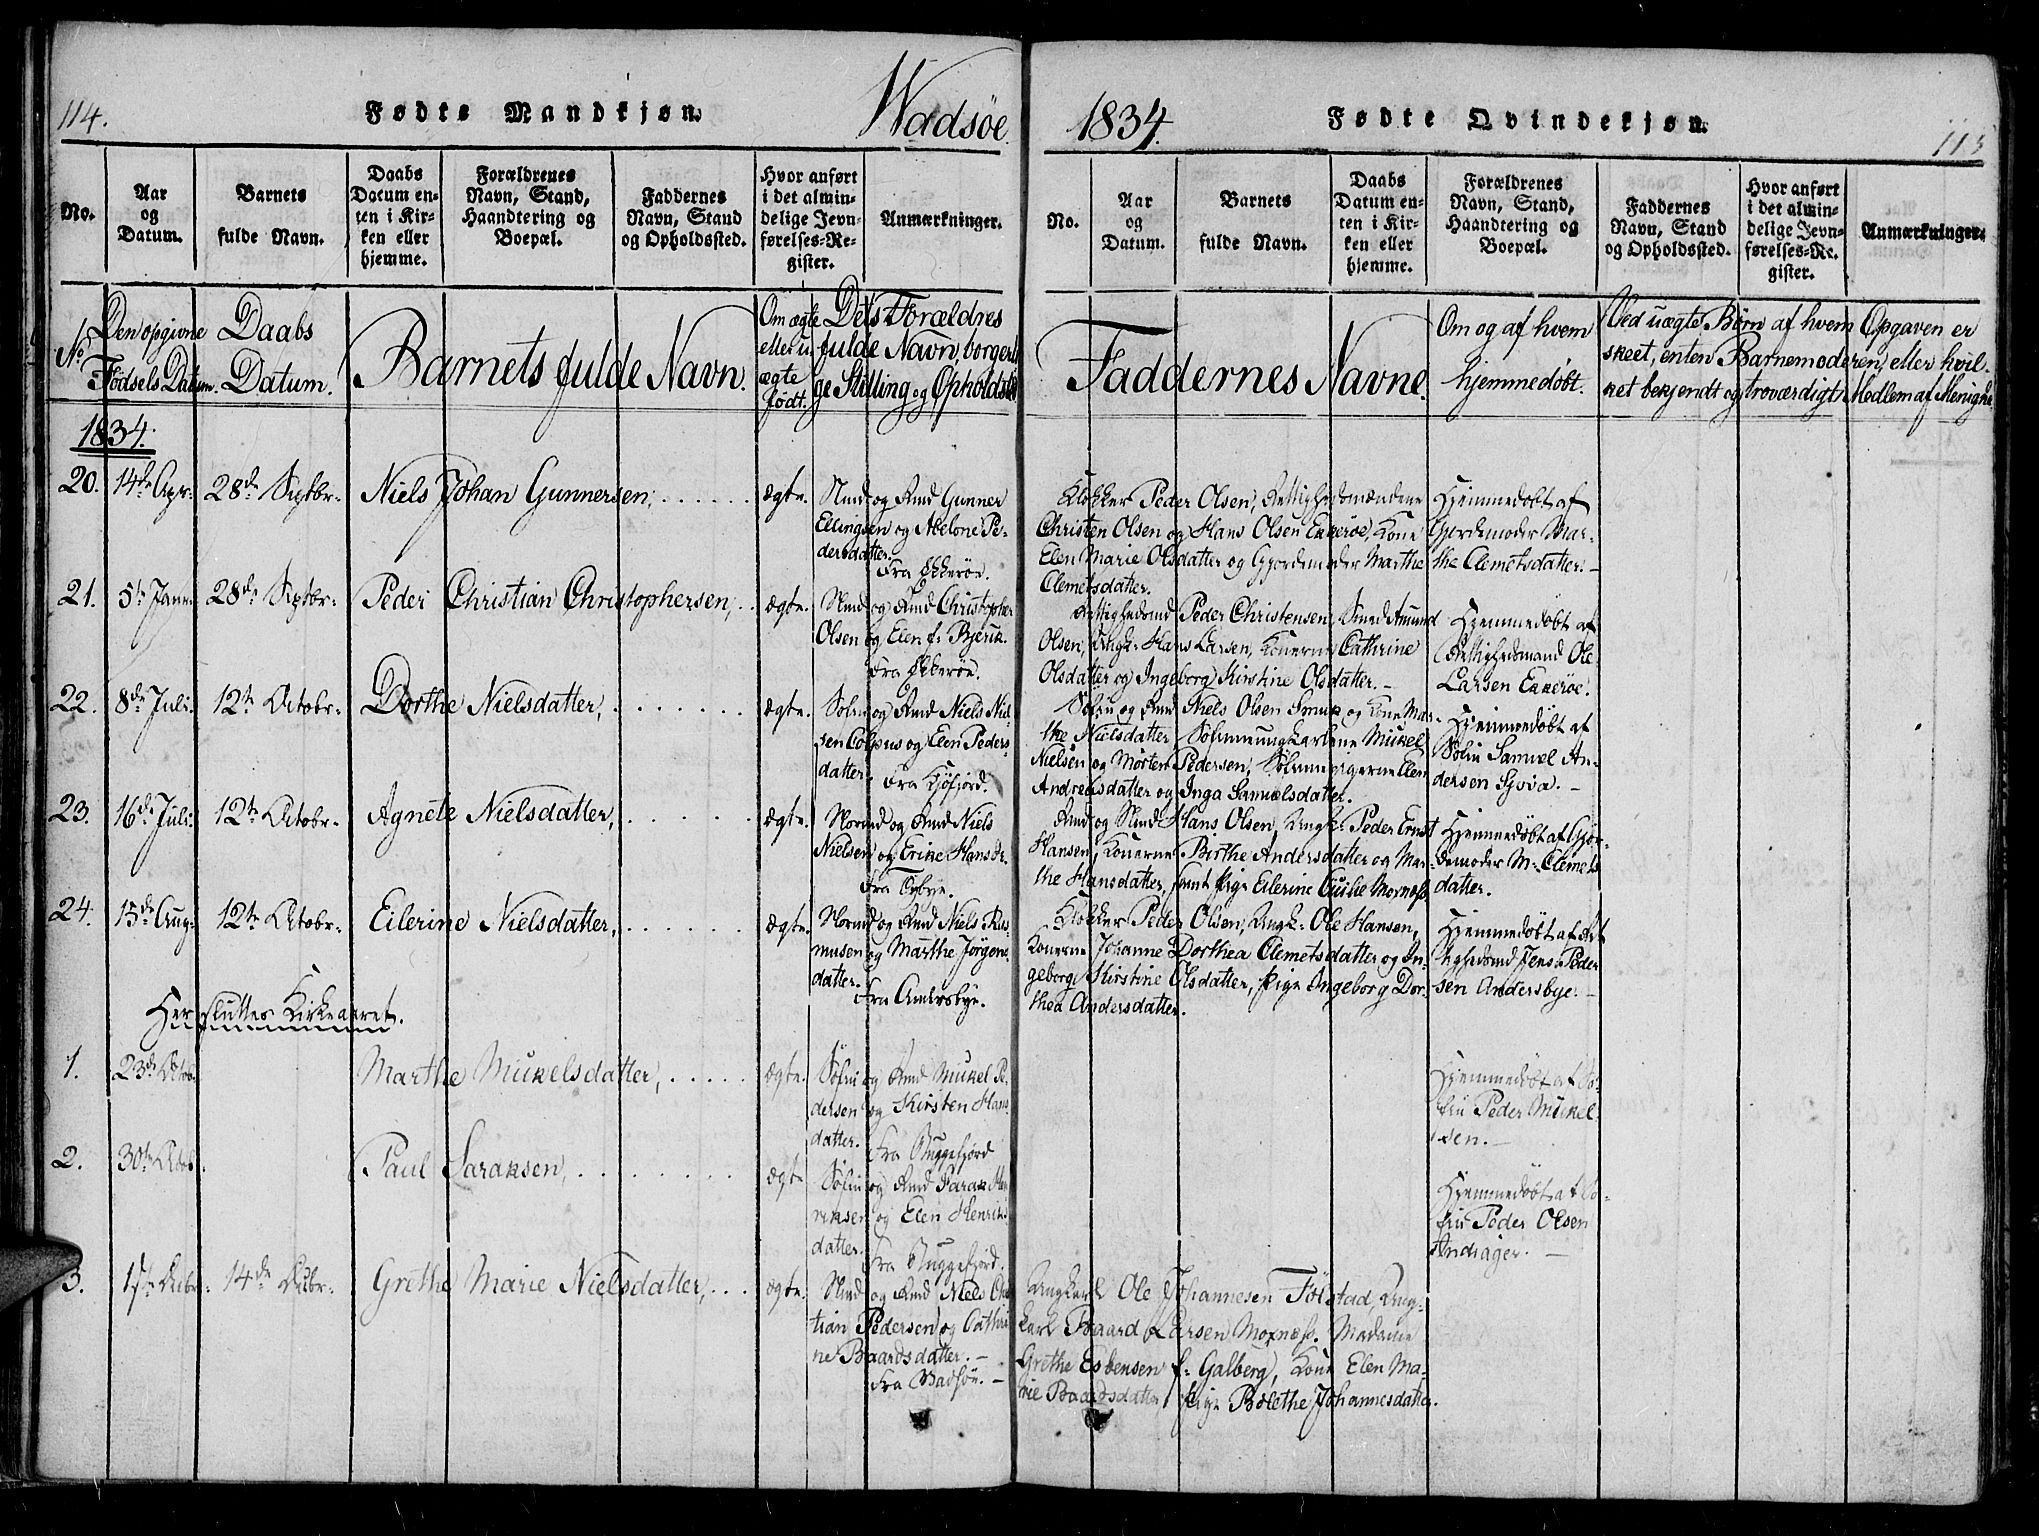 114.
Fødte Mandkjøn.
Wadsøe
1834.
Fødte Qvindekjøn.
115
No.
Aar
og
Datum.
Barnets
fulde Navn.
Daabs
Datum en-
ten i Kir-
ken eller
hjemme.
Forældrenes
Navn, Stand,
Haandtering og
Boepæl.
Faddernes
Navn, Stand
og Opholdssted.
Hvor anført
i det almin-
delige Jevn-
førelses-Re-
gister.
Anmærkninger.
No.
Aar
og
Datum.
Barnets
fulde Navn.
Daabs
Datum en-
ten i Kir-
ken eller
hjemme.
Forældrenes
Navn, Stand,
Haandtering og
Boepæl.
Faddernes
Navn, Stand
og Opholdssted.
Hvor anført
i det almin-
delige Jevn-
førelses-Re-
gister.
Anmærkninger.
No.
Den opgivne
Fødsels Datum.
Daabs
Datum.
Barnets fulde Navn.
Om ægte
eller u-
ægte
født.
Dets Forældres
fulde Navn, borgerli-
ge Stilling og Opholdsted
Faddernes Navne.
Om og af hvem
hjemmedøbt.
Ved uægte Børn af hvem Opgaven er
skeet, enten Barnemoderen, eller hvil-
ket bekjendt og troværdigt Medlem af Menighe
1834.
20. 14de Apr. 28de Septbr. Niels Johan Gunnersen, ægte.
Nmd og Kmd Gunner
Ellingsen og Abelone Pe-
dersdatter
Fra Ekkerøe.
Klokker Peder Olsen, Rettighedsmændene
Christen Olsen og Hans Olsen Ekkerøe, Kone
Elen Marie Olsdatter og Gjordemoder Marthe
Clemetsdatter.
Hjemmedøbt af
Gjordemoder Mar-
the Clemetsdatter.
21. 5te Janr. 28de Septbr. Peder Christian Christophersen, ægte.
Nmd og Kmd Christopher
Olsen og Elen f. Bjerik.
Fra Ekkerøe.
Rettighedsmd Peder Christensen, Smed Amund
Olsen, Ungk. Hans Larsen, Konerne Cathrine
Olsdatter og Ingeborg Kirstine Olsdatter.
Hjemmedøbt af
Rettighedsmand Ole
Larsen Ekkerøe.
22. 8de Juli. 12te Octobr. Dorthe Nielsdatter, ægte.
Søfin og Kmd Niels Niel-
sen Colpus og Elen Peders-
datter
Fra Kjøfjord.
Søfin og Kmd Niels Olsen Smuk og Kone Mar-
the Nielsdatter Søfinneungkarlene Mikel
Nielsen og Morten Pedersen, Søfinnepigerne Elen
Andreasdatter og Inga Samuelsdatter.
Hjemmedøbt af
Søfin Samuel An-
dersen Sjvia.
23. 16de Juli. 12te Octobr. Agnete Nielsdatter, ægte.
Normd og Kmd Niels
Nielsen og Erike Hansdr.
Fra Byluft.
Kmd og Nmd Hans Olsen, Ungk. Peder Ernst
Hansen, Konerne Birthe Andersdatter og Mar-
the Hansdatter, samt Pige Eilerine Cecilie Moxness
Hjemmedøbt af Gjor-
demoder M. Clemets
datter.
24. 15de Aug. 12te Octobr. Eilerine Nielsdatter, ægte.
Normd og Kmd Niels Ras-
musen og Marthe Jørgens-
datter.
Fra Andersbye.
Klokker Peder Olsen, Ungk. Ole Hansen,
Konerne Johanne Dorthea Clemetsdatter og In-
geborg Kirstine Olsdatter, Pige Ingeborg Dor-
thea Andersdatter.
Hjemmedøbt af Ret
tighedsmd Jens Peder
sen Andersbye.
Her sluttes Kirkeaaret.
1. 23de Octob. Marthe Mikelsdatter, ægte.
Søfin og Kmd Mikel Pe-
dersen og Kirsten Hans
datter.
Fra Buggefjord
Hjemmedøbt af Sø-
fin Peder Mikel
sen.
2. 30te Octob. Paul Saraksen, ægte
Søfin og Kmd Sarak Hen
riksen og Elen Henriks
datter.
Fra Buggefjord.
Hjemmedøbt af Sø-
fin Peder Olsen
Andiager.
3. 1ste Decbr. 14de Decbr. Grethe Marie Nielsdatter, ægte.
Nmd og Kmd Niels Chri
tian Pedersen og Cathri
ne Baardsdatter.
Fra Vadsøe.
Ungkarl Ole Johannesen Følstad, Ung-
karl Baard Larsen Moxness. Madame
Grethe Esbensen f. Galberg, Kone Elen Ma-
rie Baardsdatter Pige Bolethe Johannesdatter.